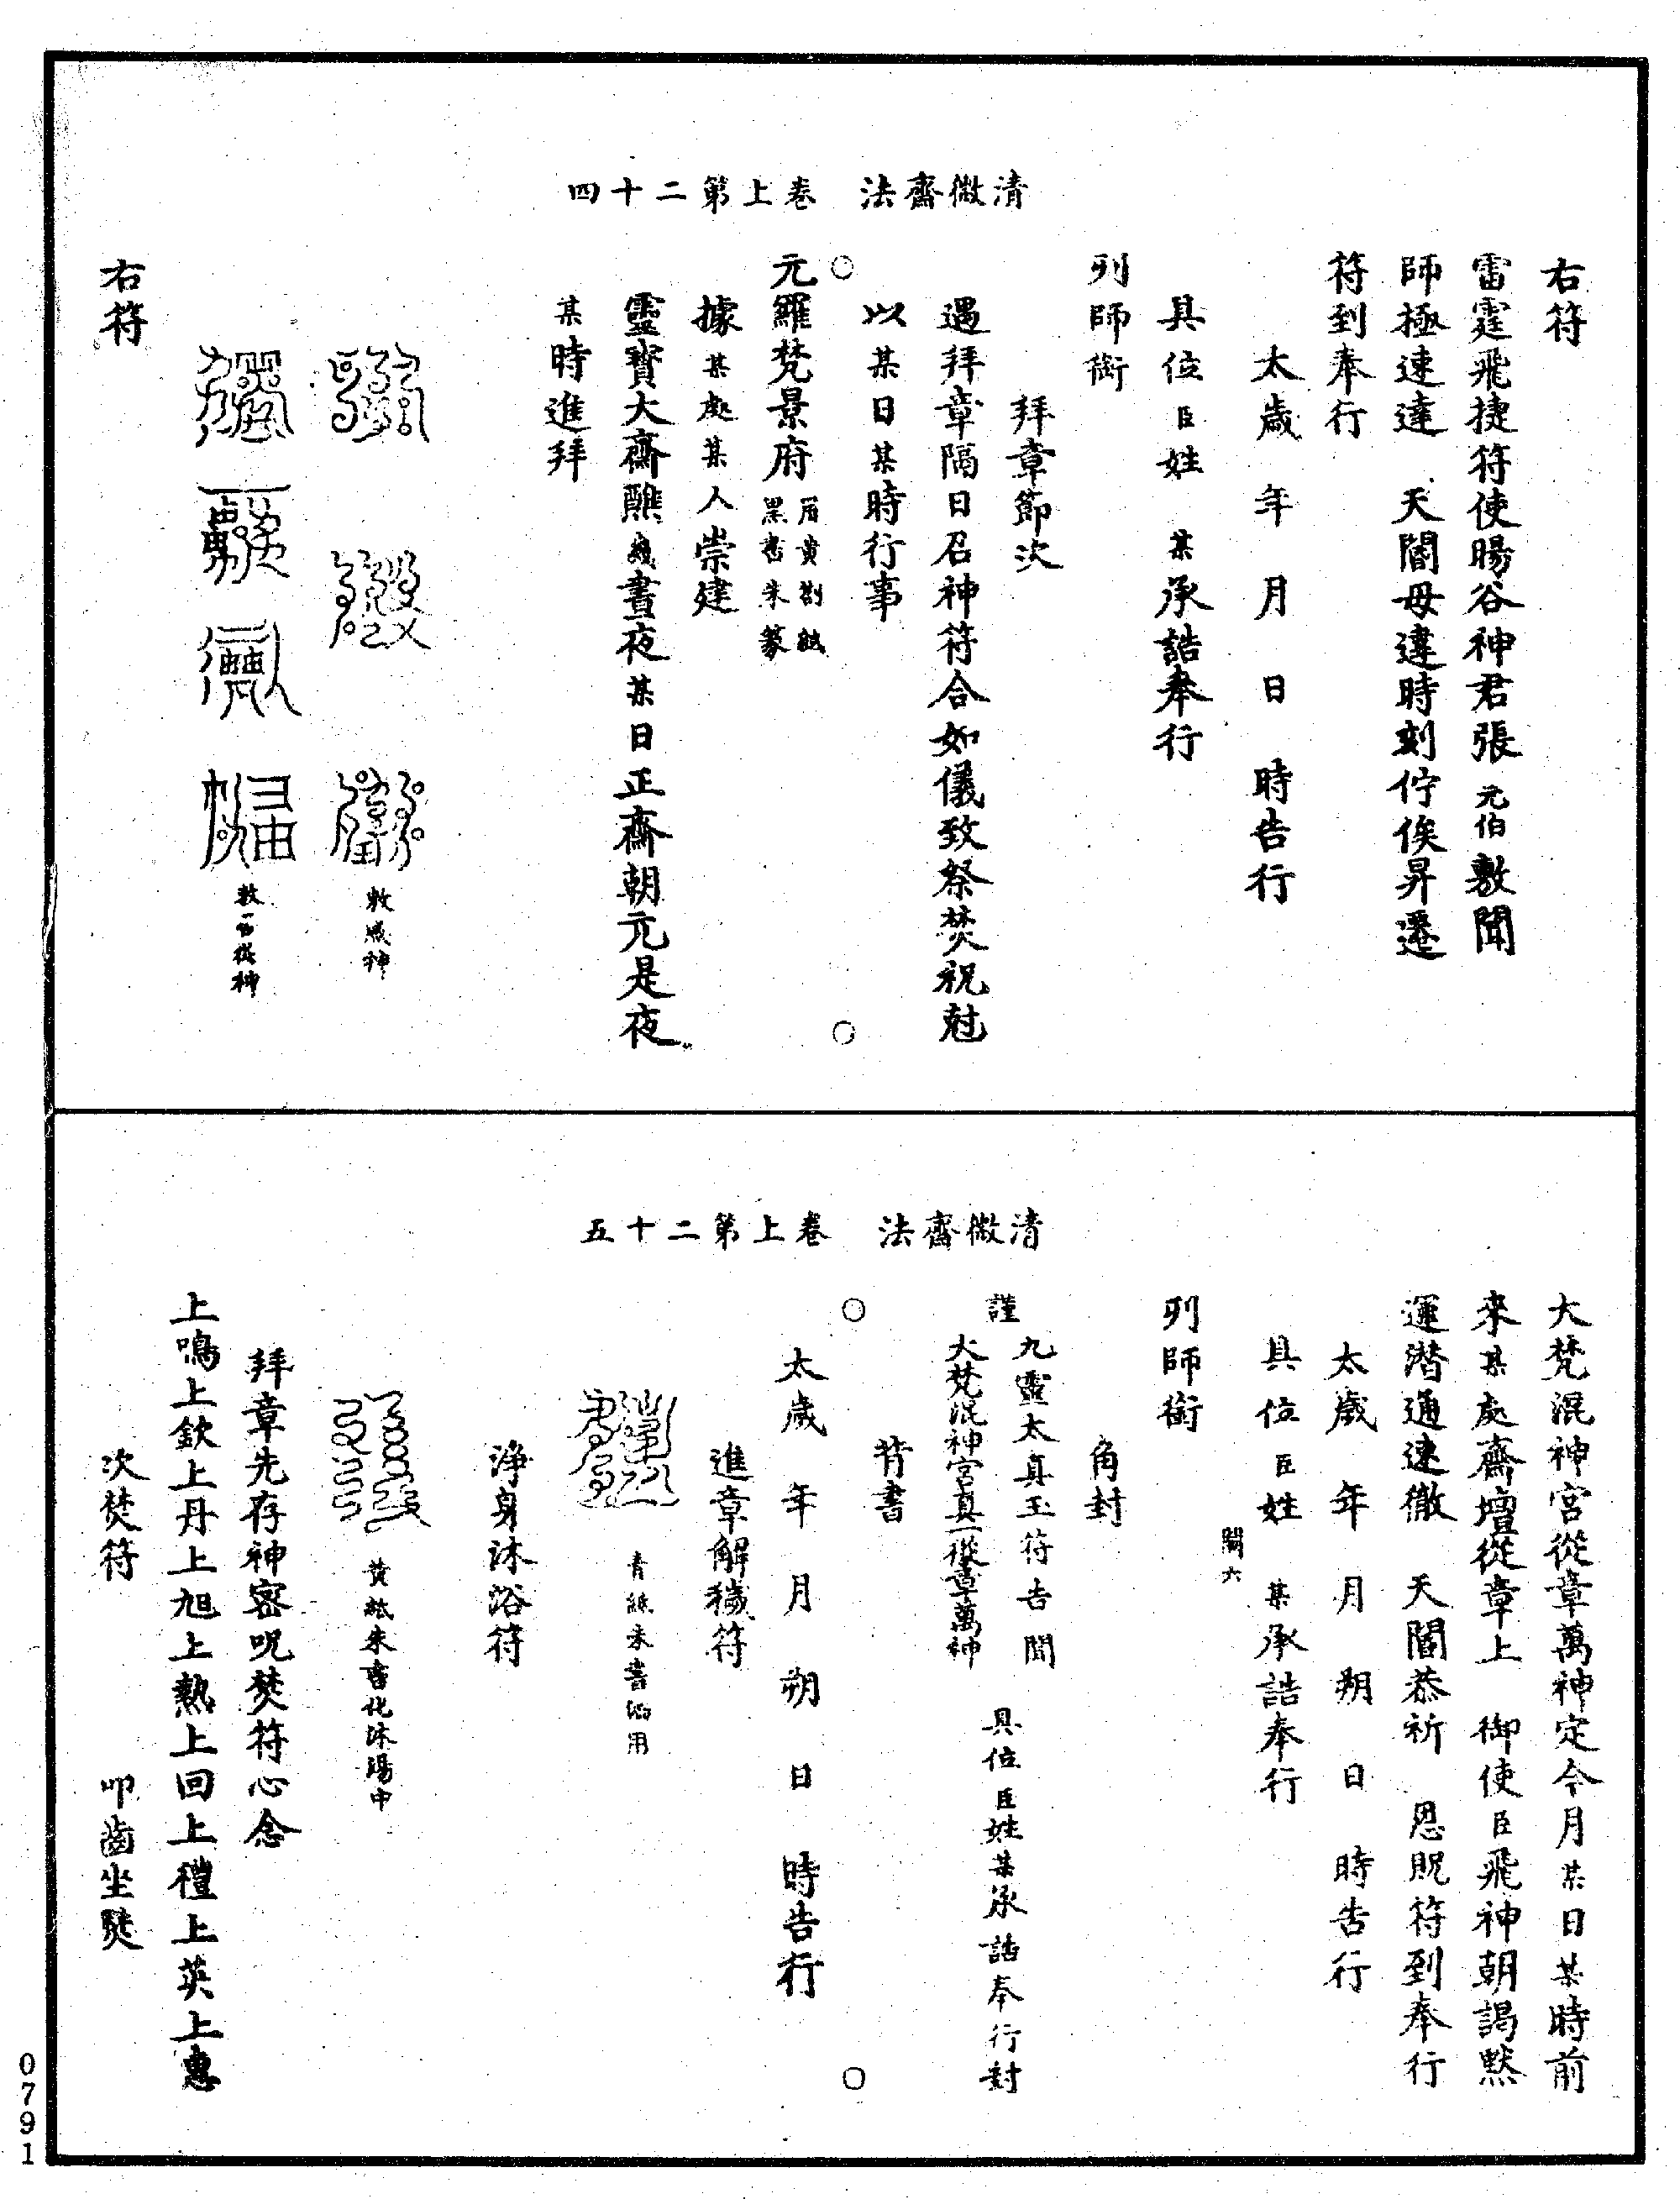 清微齋法　卷上第二十四
右符
雷霆飛捷符使暘谷神君張元伯敷聞
師極速達　天閽毋違時刻佇俟昇遷
符到奉行
太歲　年　月　日　時告行
具位臣姓　某承誥奉行
列師銜
拜章節次
遇拜章隔日召神符合如儀致祭焚祝尅
以某日某時行事
○　○
元羅梵景府
黑書朱篆
據某處某人崇建
靈寶大齋醮幾晝夜某日正齋朝元是夜
某時進拜
敕威神
右符
清微齋法　卷上第二十五
大梵混神宮從章萬神定今月某日某時前
來某處齋壇從章上　御使臣飛神朝謁默
運潛通速徹　天閽恭祈　恩貺符到奉行
太歲　年　月　朔　日　時告行
具位臣姓　某承誥奉行
關六
列師銜
角封
謹
九靈太真玉符告聞
大梵混神宮真一從章萬神
具位臣姓某承誥奉行封
背書
○　○
太歲　年　月　朔　日　時告行
進章解穢符
青紙朱書
淨身沐浴符
黃紙朱書化沐湯中
拜章先存神密呪焚符心念
上鳴上欽上丹上旭上熱上回上禮上英上惠
次焚符　叩齒坐㷊
0791